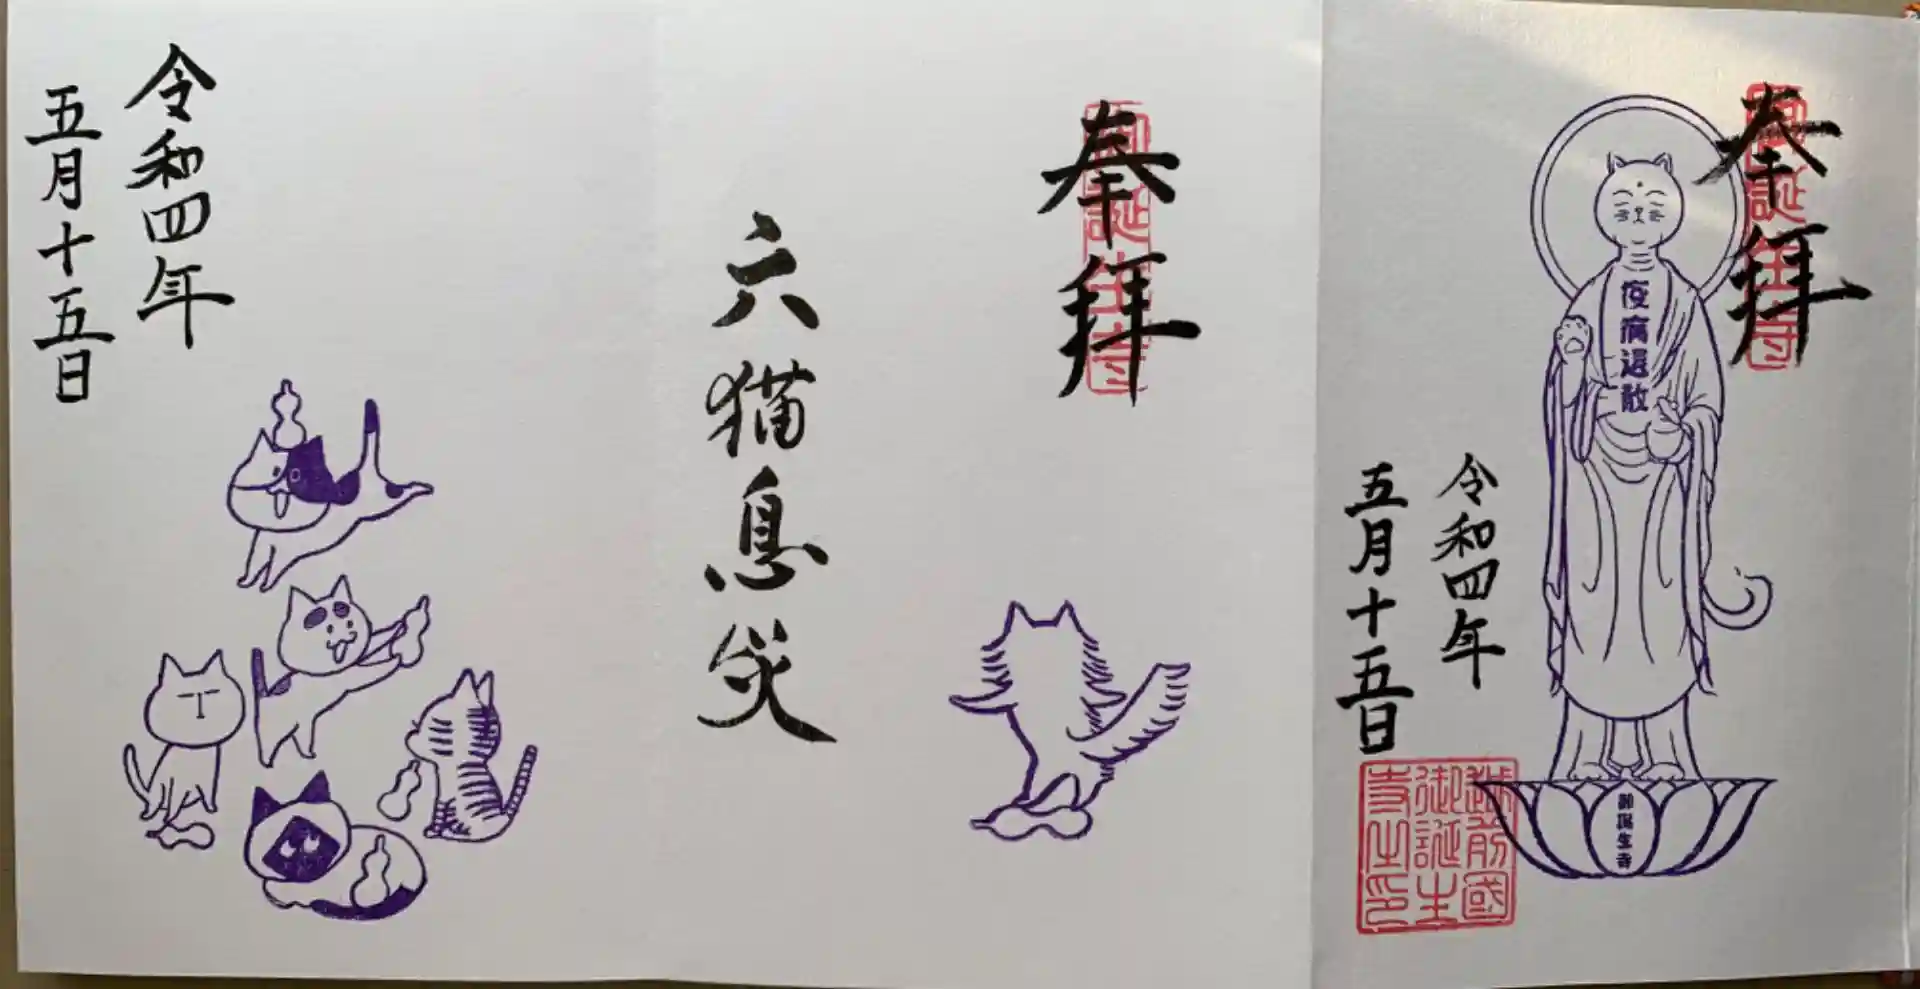 奉拝
御誕生寺
疫病退散
令和四年
五月十五日
越前國
御誕生
寺之印
御誕生寺
奉拝
御誕生寺
六猫息災
令和四年
五月十五日